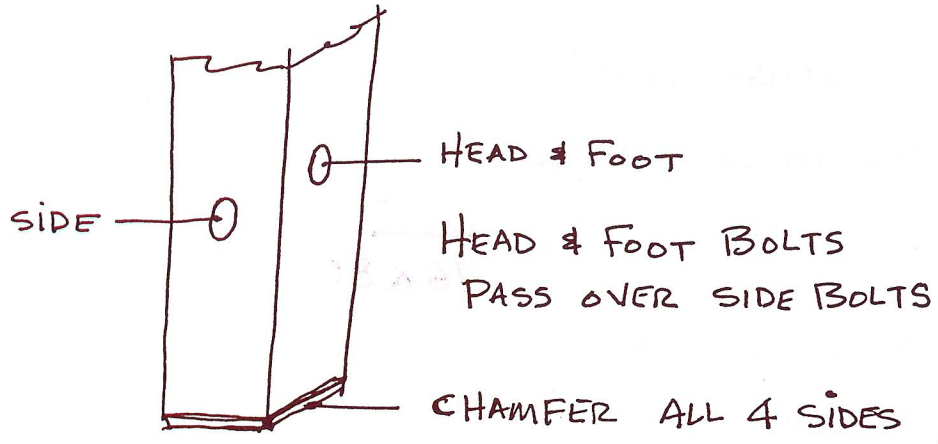 HEAD & FOOT
SiDE
HEAD & FOOT BOLTS
PASS OVER SIDE BOLTS
CHAMFER ALL 4 SiDES